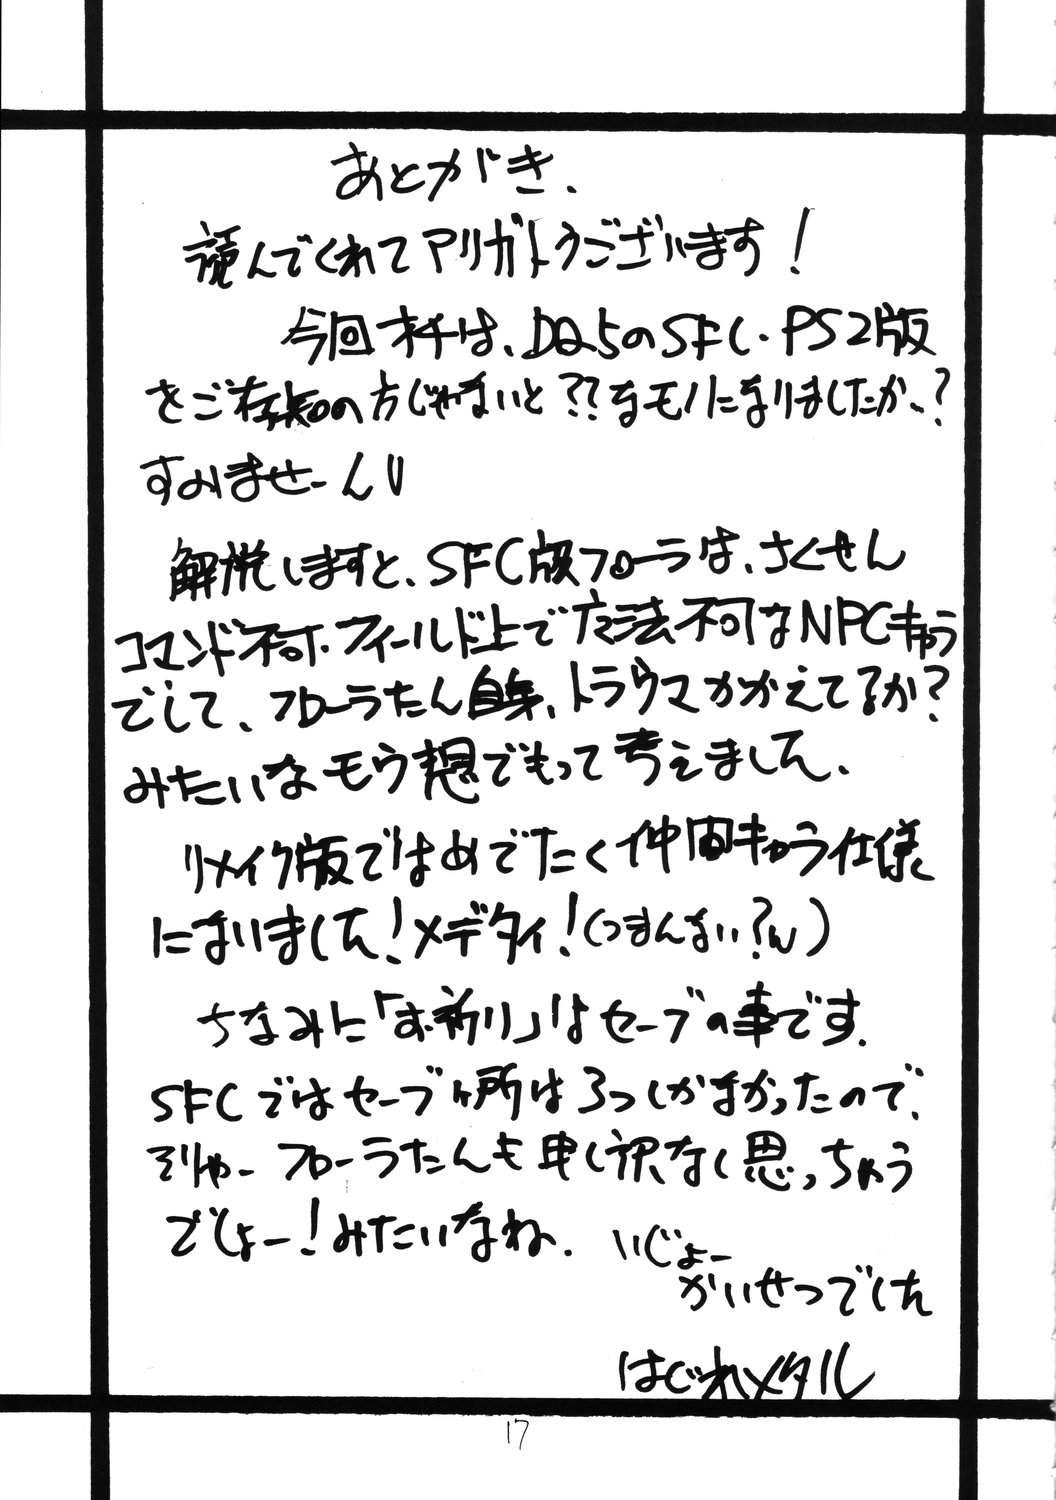 あとがき、
読んでくれてアリガトうございます！
今回オチは、DQ5のSFC・PS2版
をご存知の方じゃないと??なモノになりましたか、？
すみませーんU
解説しますと、SFC版フローラは、さくせん
コマンド不可、フィールド上で方法不可なNPCキャラ
でして、フローラたん自身、トラウマかかえてるか？
みたいなモウ想でもって考えました、
リメイク版ではめでたく仲間キャラ仕様
になりました！メデタイ！(つまんない？w)
ちなみに「お祈り」はセーブの事です.
SFCではセーブヶ所は3つしかなかったので、
そりゃーフローラたんも申し訳なく思っちゃう
でしょー！みたいなね.
いじょー
かいせつでした
はぐれメタル
17